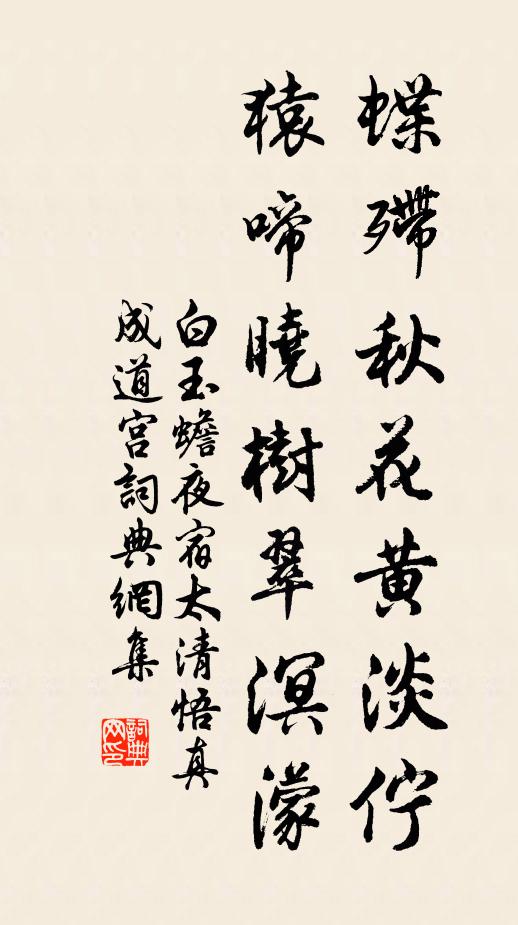 蝶殢秋花黄淡佇
猿啼曉樹翠溟濛
白玉蟾夜宿太清悟真
成道宫詞典網集
詞典網印